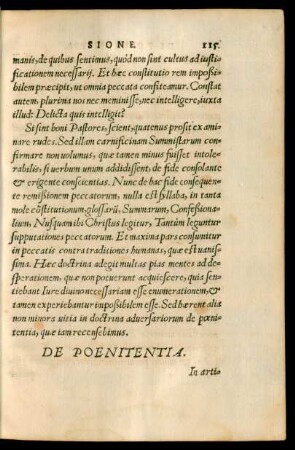 SIONE. 115.
manis, de quibus sentimus, quòd non sint cultus ad iusti-
ficationem necessarij. Et hæc constitutio rem impoßi-
bilem præcipit, ut omnia peccata confiteamur. Constat
autem, plurima nos nec meminisse, nec intelligere, iuxta
illud: Delicta quis intelligit?
Si sint boni Pastores, scient, quatenus prosit exami
nare rudes. Sed illam carnificinam Summistarum con-
firmare non uolumus, quæ tamen minus fuisset intole-
rabilis, si uerbum unum addidissent, de fide consolante
& erigente conscientias. Nunc de hac fide consequen-
te remißionem peccatorum, nulla est syllaba, in tanta
mole cōstitutionum, glossarū, Summarum, Confeßiona-
lium, Nusquam ibi Christus legitur, Tantùm leguntur
supputationes peccatorum. Et maxima pars consumitur
in peccatis contra traditiones humanas, quæ est uanissi-
ma. Hæc doctrina adegit multas pias mentes ad de-
sperationem, quæ non potuerunt acquiescere, quia sen-
tiebant Iure diuino necessariam esse enumerationem, &
tamen experiebantur impoßibilem esse. Sed hærent alia
non minora uitia in doctrina aduersariorum de pœni-
tentia, quæ iam recensebimus.
DE POENITENTIA.
In arti-